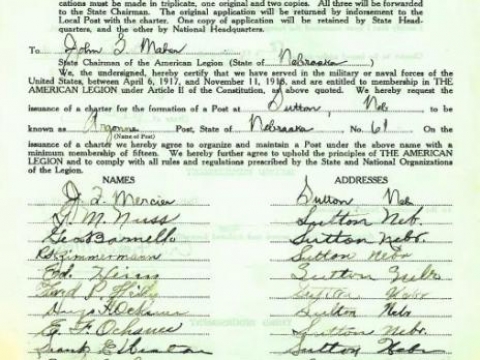 cations must be made in triplicate, one original and two copies. All three will be forwarded
to the State Chairman. The original application will be returned by indorsement to the
Local Post with the charter. One copy of application will be retained by State Head-
quarters, and the other by National Headquarters.
To John G Maher
State Chairman of the American Legion (State of Nebraska )
We, the undersigned, hereby certify that we have served in the military or naval forces of the
United States, between April 6, 1917, and November 11, 1918, and are entitled to membership in THE
AMERICAN LEGION under Article II of the Constitution, as above quoted. We hereby request the
issuance of a charter for the formation of a Post at Sutton, Neb to be
known as Argonne Post, State of Nebraska No. 61 On the
(Name of Post)
issuance of a charter we hereby agree to organize and maintain a Post under the above name with a
minimum membership of fifteen. We hereby further agree to uphold the principles of THE AMERICAN
LEGION and to comply with all rules and regulations prescribed by the State and National Organizations
of the Legion.
NAMES ADDRESSES
Mercier Sutton Neb
M. Nuss Sutton Neb.
Sutton Nebr.
Zimmermann Sutton Nebr
Ed. Sutton Nebr
P. Sutton Nebr
Ochsner Sutton Nebr
E. F. Ochsner Sutton Nebr
Frank E Sutton Nebr